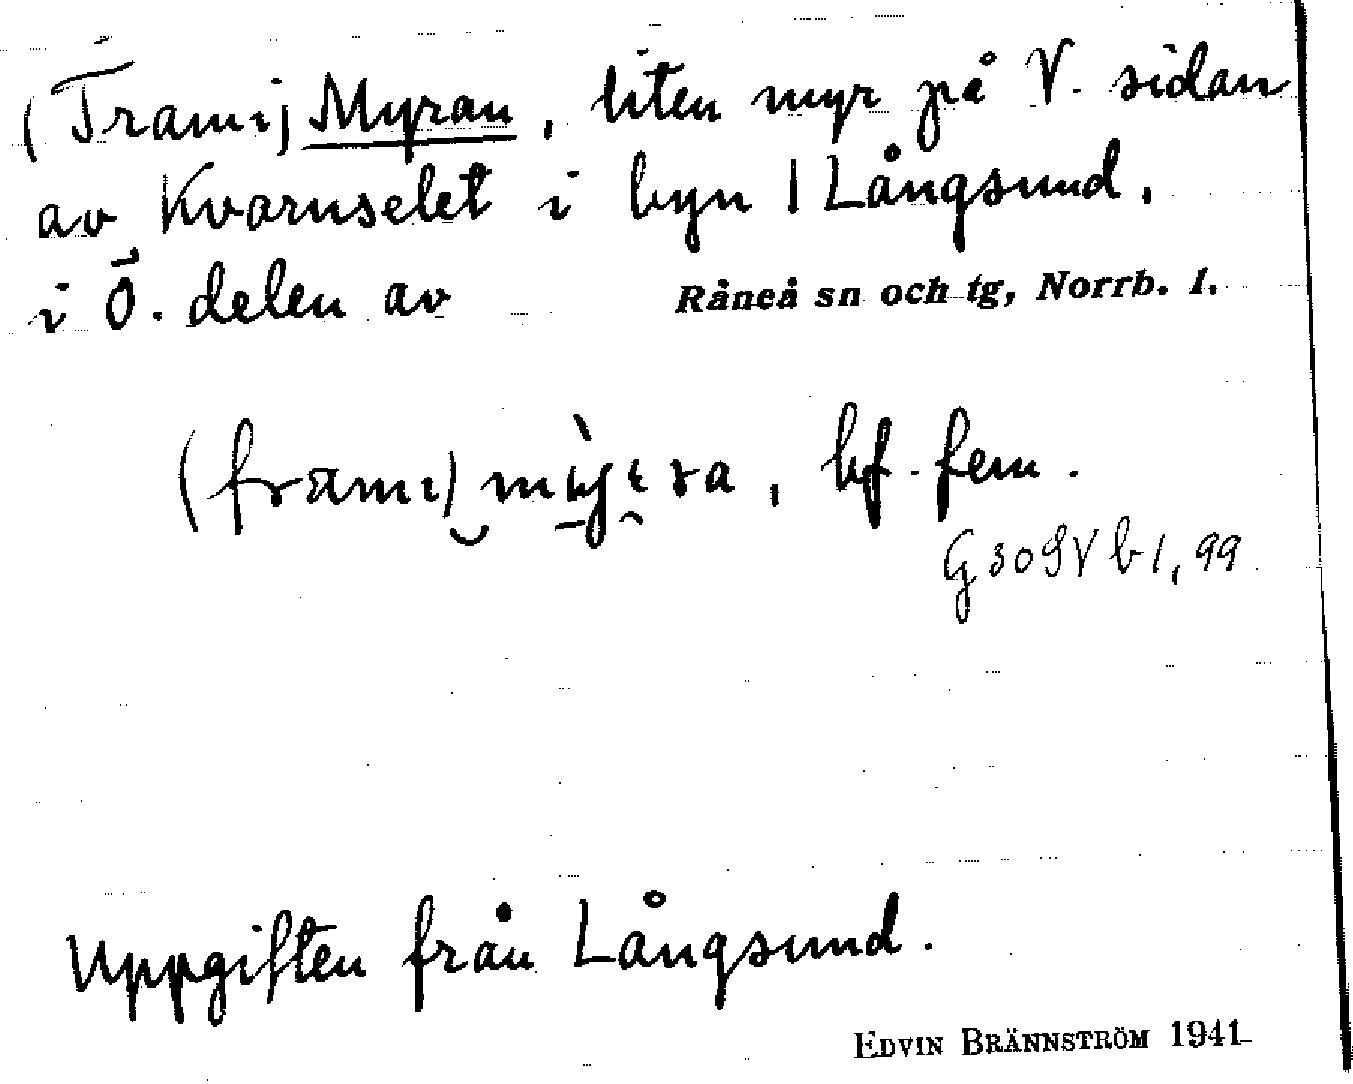 (Frami) Myran, liten myr på V. sidan
av Kvarnselet i byn / Långsund,
i Ö. delen av Råneå sn och tg, Norrb. l.
bf. fem.
G 309 V b 1, 99
Uppgiften från Långsund.
EDVIN BRÄNNSTRÖM 1941